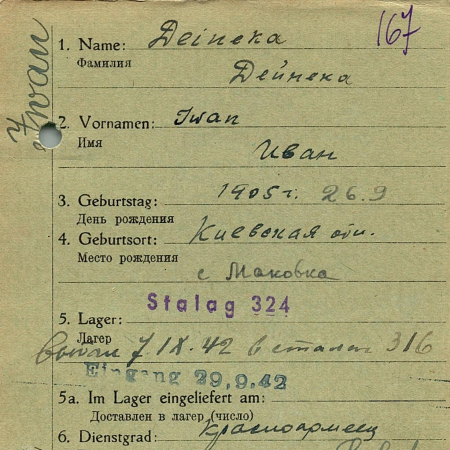 167
Iwan
1. Name: Deineka
Фамилия
Дейнека
2. Vornamen: Iwan
Имя
Иван
3. Geburtstag: 1905 г. 26.9
День рождения
4. Geburtsort: Киевская обл.
Место рождения
с Маковка
Stalag 324
5. Lager:
Лагер
выбыл 7 IX.42 в сталаг 316
Eingang 29.9.42
5a. Im Lager eingeliefert am:
Доставлен в лагер (число)
6. Dienstgrad: Красноармеец